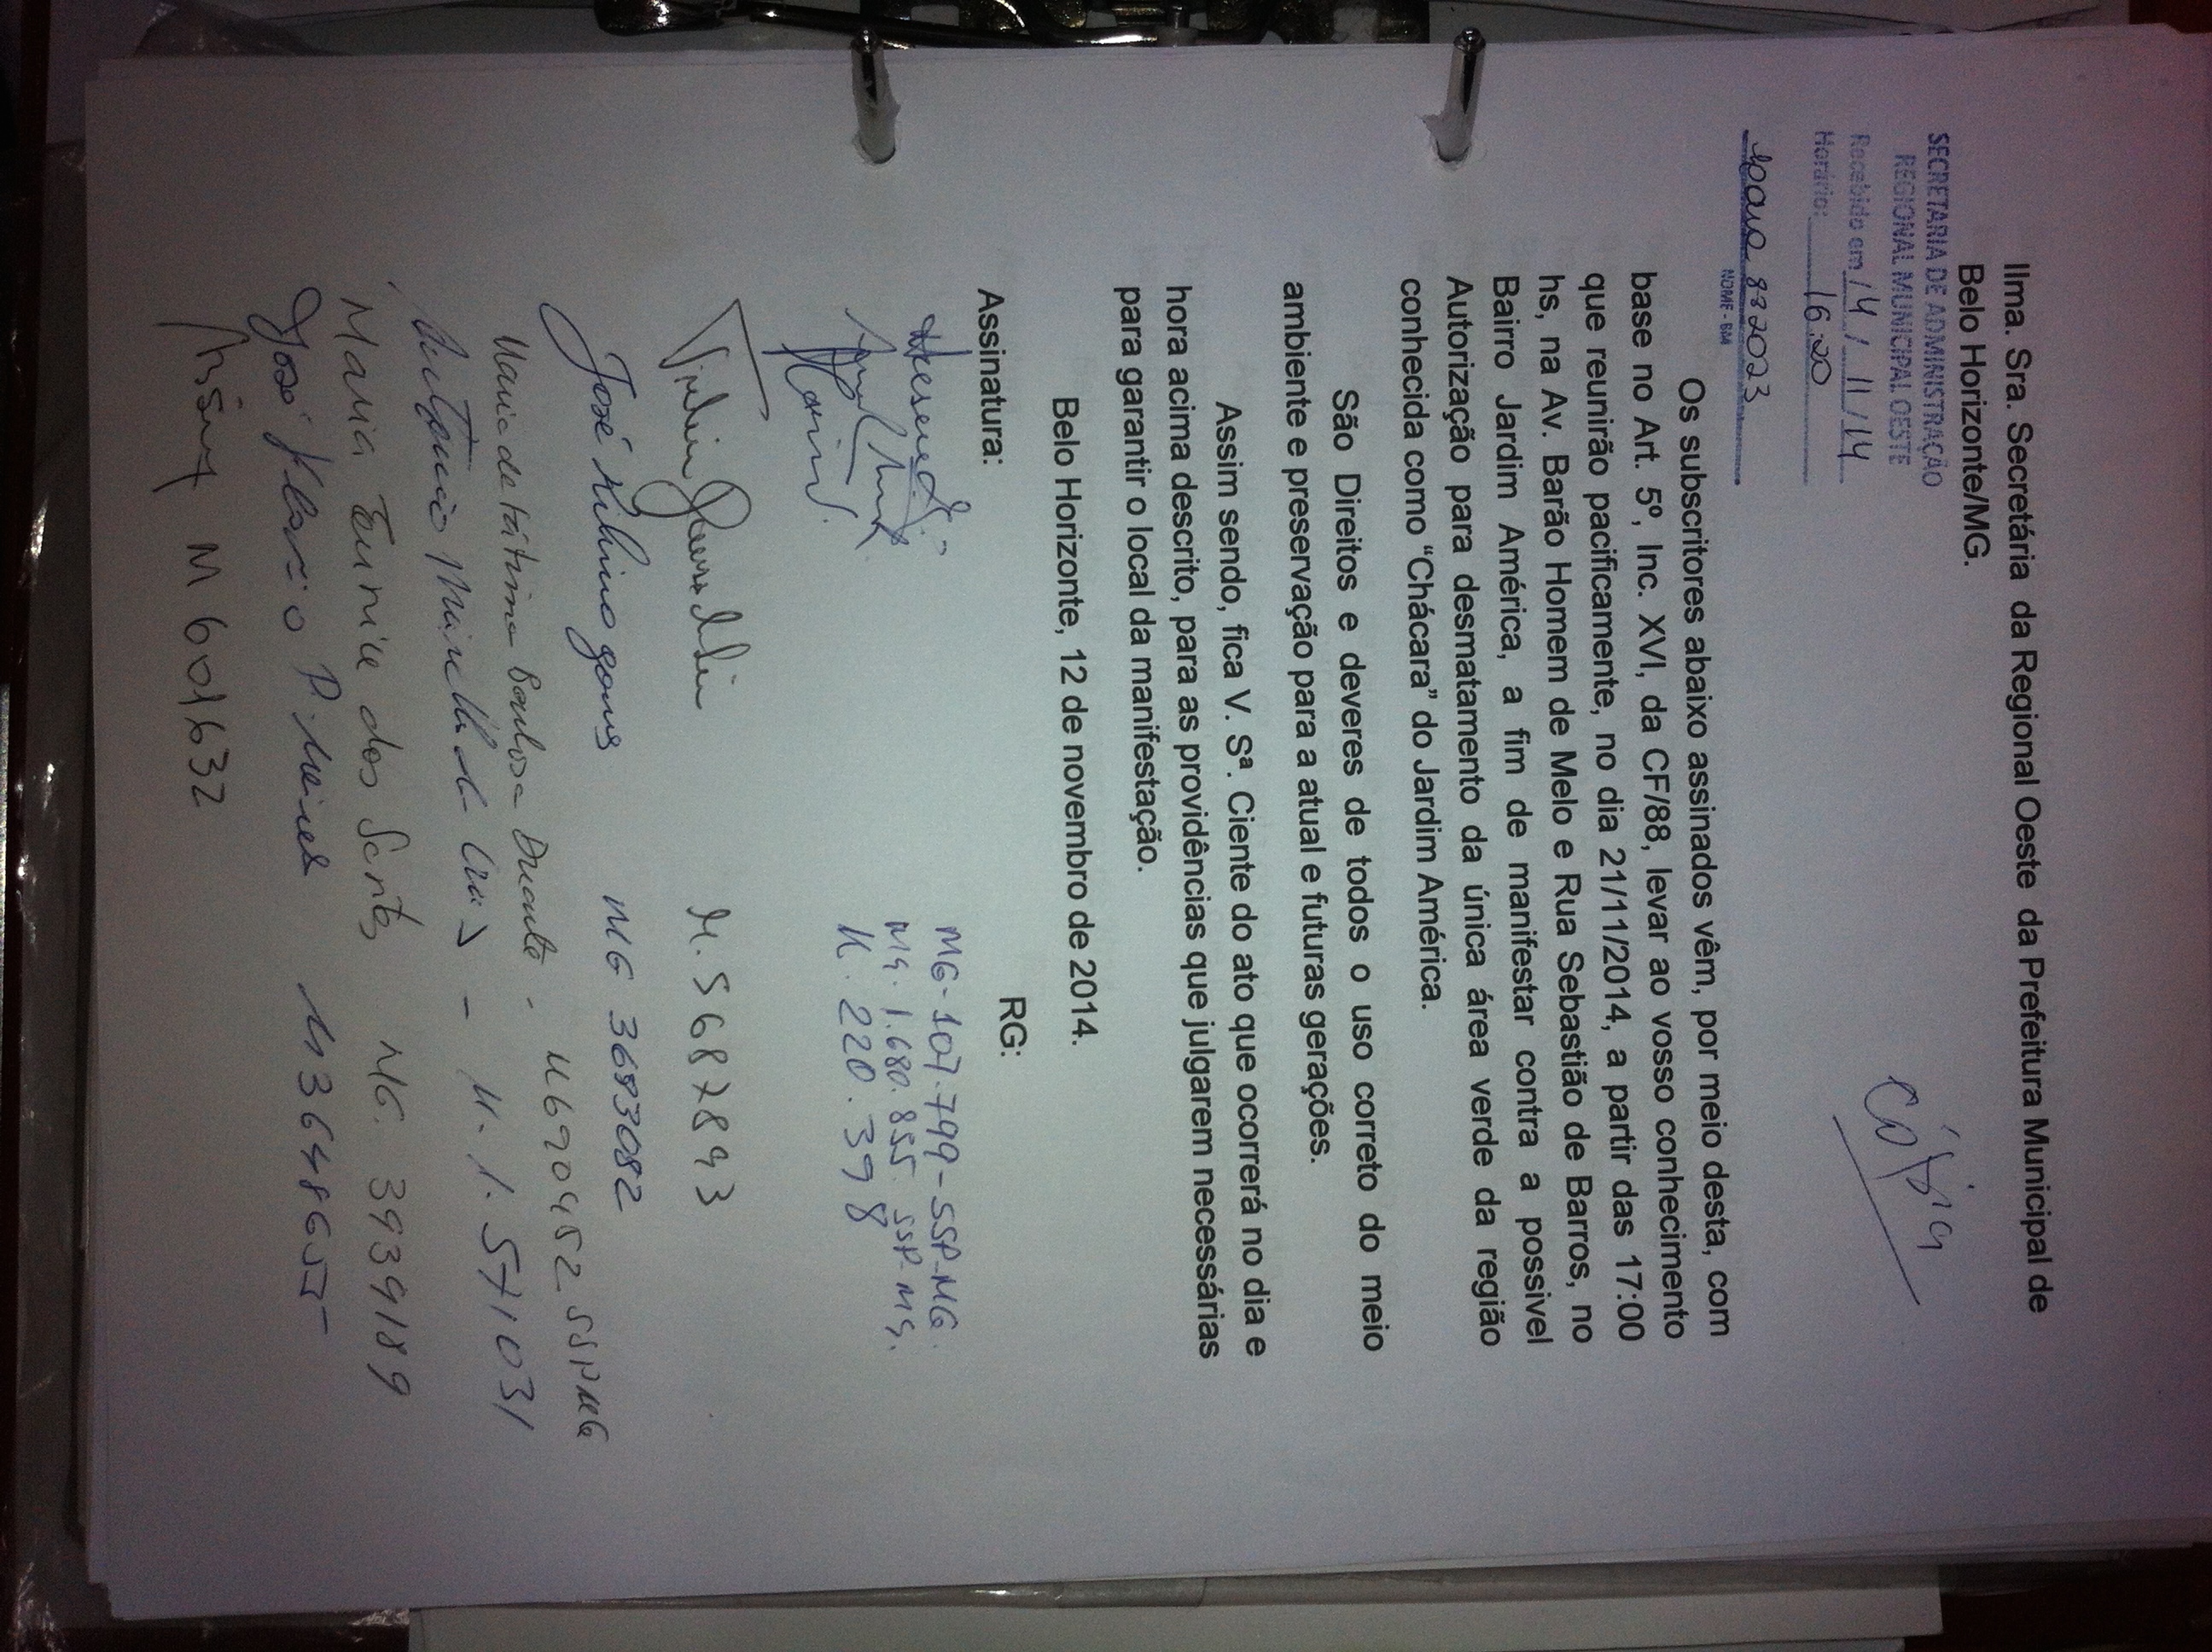 Ilma. Sra. Secretária da Regional Oeste da Prefeitura Municipal de
Belo Horizonte/MG.
SECRETARIA DE ADMINISTRAÇÃO
REGIONAL MUNICIPAL OESTE
Recebido em 14 / 11 / 14
Horário: 16:20
NOME - BM
Cópia
Os subscritores abaixo assinados vêm, por meio desta, com
base no Art. 5º, Inc. XVI, da CF/88, levar ao vosso conhecimento
que reunirão pacificamente, no dia 21/11/2014, a partir das 17:00
hs, na Av. Barão Homem de Melo e Rua Sebastião de Barros, no
Bairro Jardim América, a fim de manifestar contra a possivel
Autorização para desmatamento da única área verde da região
conhecida como "Chácara" do Jardim América.
São Direitos e deveres de todos o uso correto do meio
ambiente e preservação para a atual e futuras gerações.
Assim sendo, fica V. Sª. Ciente do ato que ocorrerá no dia e
hora acima descrito, para as providências que julgarem necessárias
para garantir o local da manifestação.
Belo Horizonte, 12 de novembro de 2014.
Assinatura: RG:
MG-107.799-SSP-MG.
MG. 1.680.855. SSP. MG.
M. 220.398
M. 5687893
José MG 3683082
Maria de Fátima Barbosa Duarte - M6909452 SSPMG
Antonio - M. 1.571031
Maria Eunice dos Santos MG. 3939189
José P. M3648655
M 601632